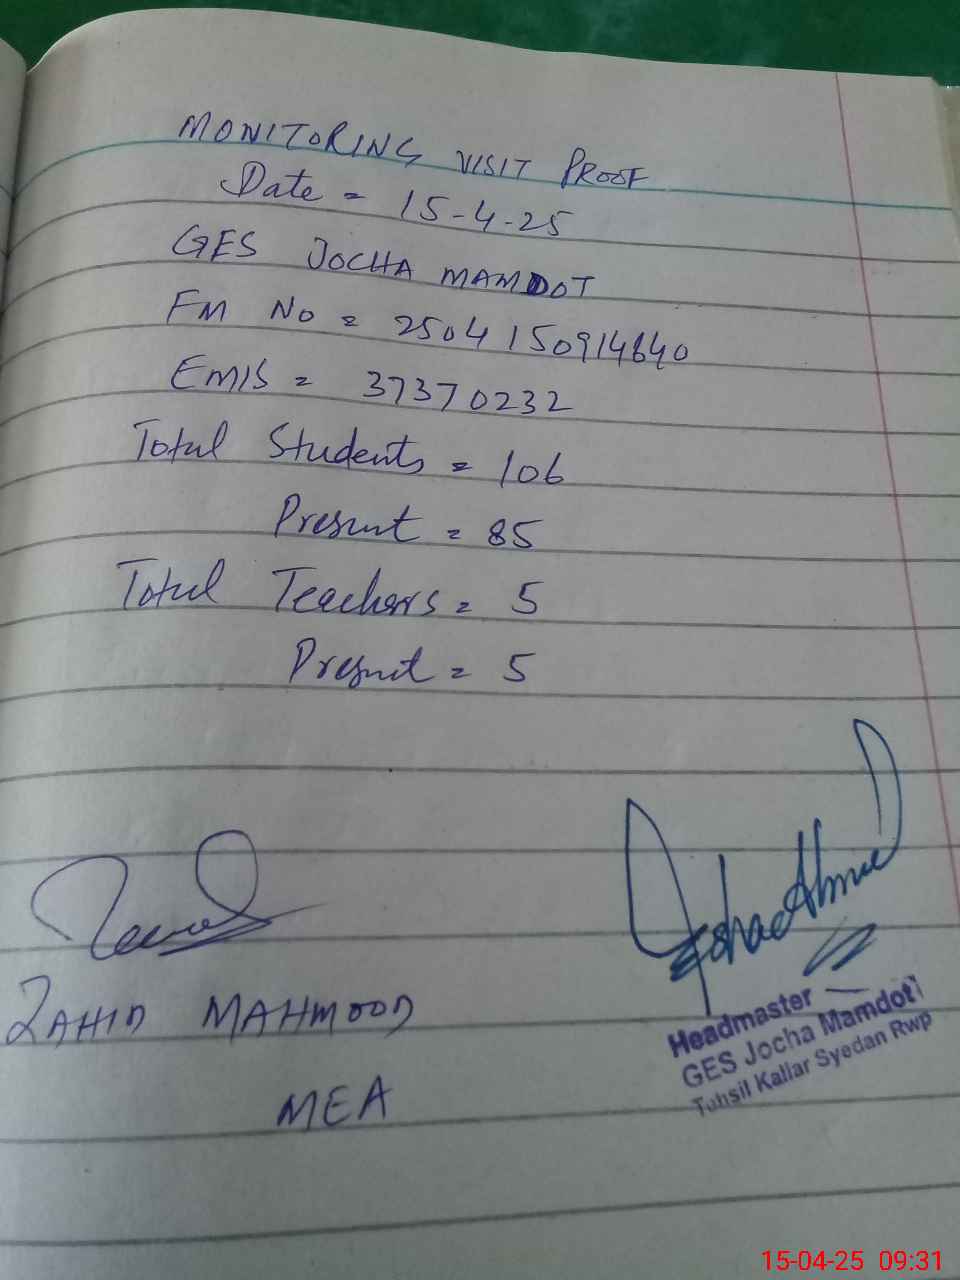 MONITORING VISIT PROOF
Date = 15-4-25
GES JOCHA MAMDOT
FM No = 2504150914640
EMIS = 37370232
Total Students = 106
Present = 85
Total Teachers = 5
Present = 5
ZAHID MAHMOOD
MEA
Headmaster
GES Jocha Mamdot
Tehsil Kallar Syedan Rwp
15-04-25 09:31